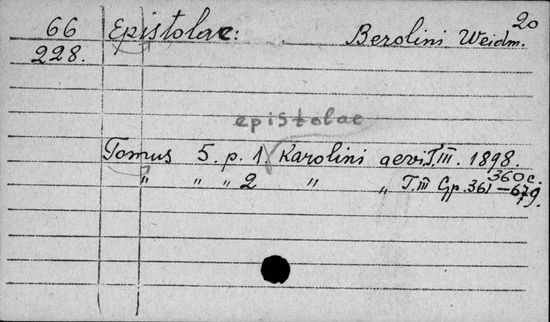 20
66 Epistolae: Berolini Weidm.
228.
epistolae
Tomus 5. p. 1 Karolini aevi T.III. 1898.
360 c.
" " " 2 " " T.III Cp. 361–679.